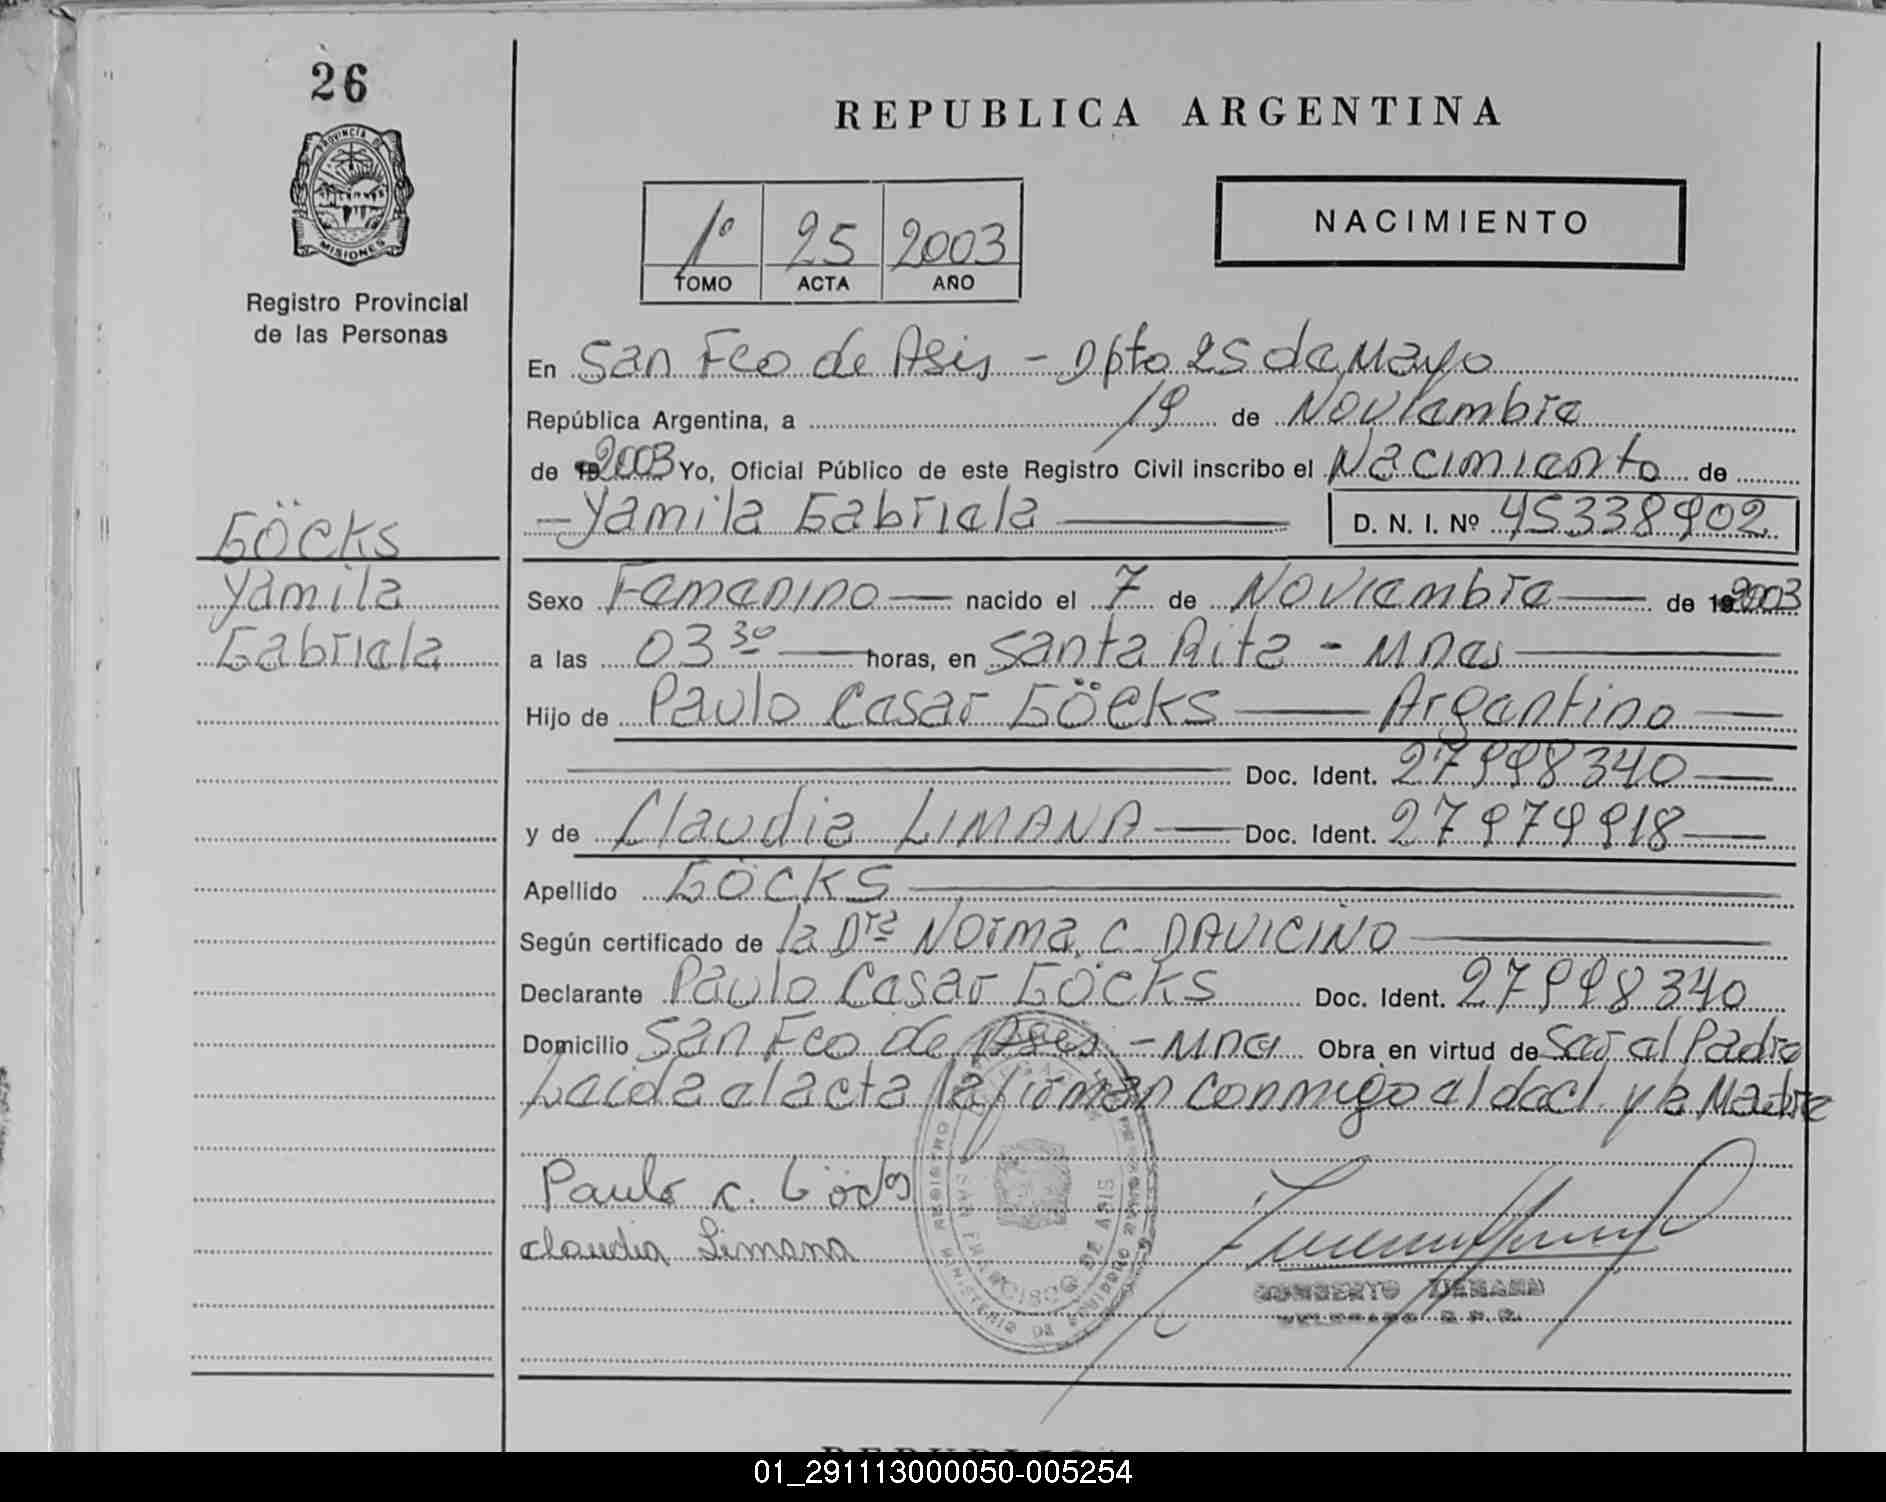 26
PROVINCIA DE
MISIONES
Registro Provincial
de las Personas
REPUBLICA ARGENTINA
1º 25 2003
TOMO ACTA AÑO
NACIMIENTO
En San Fco de Asis - Dpto 25 de Mayo
República Argentina, a 19 de Noviembre
de 2003 Yo, Oficial Público de este Registro Civil inscribo el Nacimiento de
Göcks
- Yamila Gabriela D. N. I. Nº 45338902
Yamila
Sexo Femenino nacido el 7 de Noviembre de 2003
Gabriela
a las 03 30 horas, en Santa Rita - Mnes
Hijo de Paulo Cesar Göcks Argentino
Doc. Ident. 27998340
y de Claudia LIMANA Doc. Ident. 27979918
Apellido Göcks
Según certificado de la Dra Norma C. DAVICINO
Declarante Paulo Cesar Göcks Doc. Ident. 27998340
Domicilio San Fco de Asis - Mnes Obra en virtud de Ser el Padre
Leida el acta la firman conmigo el decl. y la Madre
Paulo C. Göcks
Claudia Limana
REGISTRO
SAN FRANCISCO DE ASIS
MINISTERIO DE
01_291113000050-005254